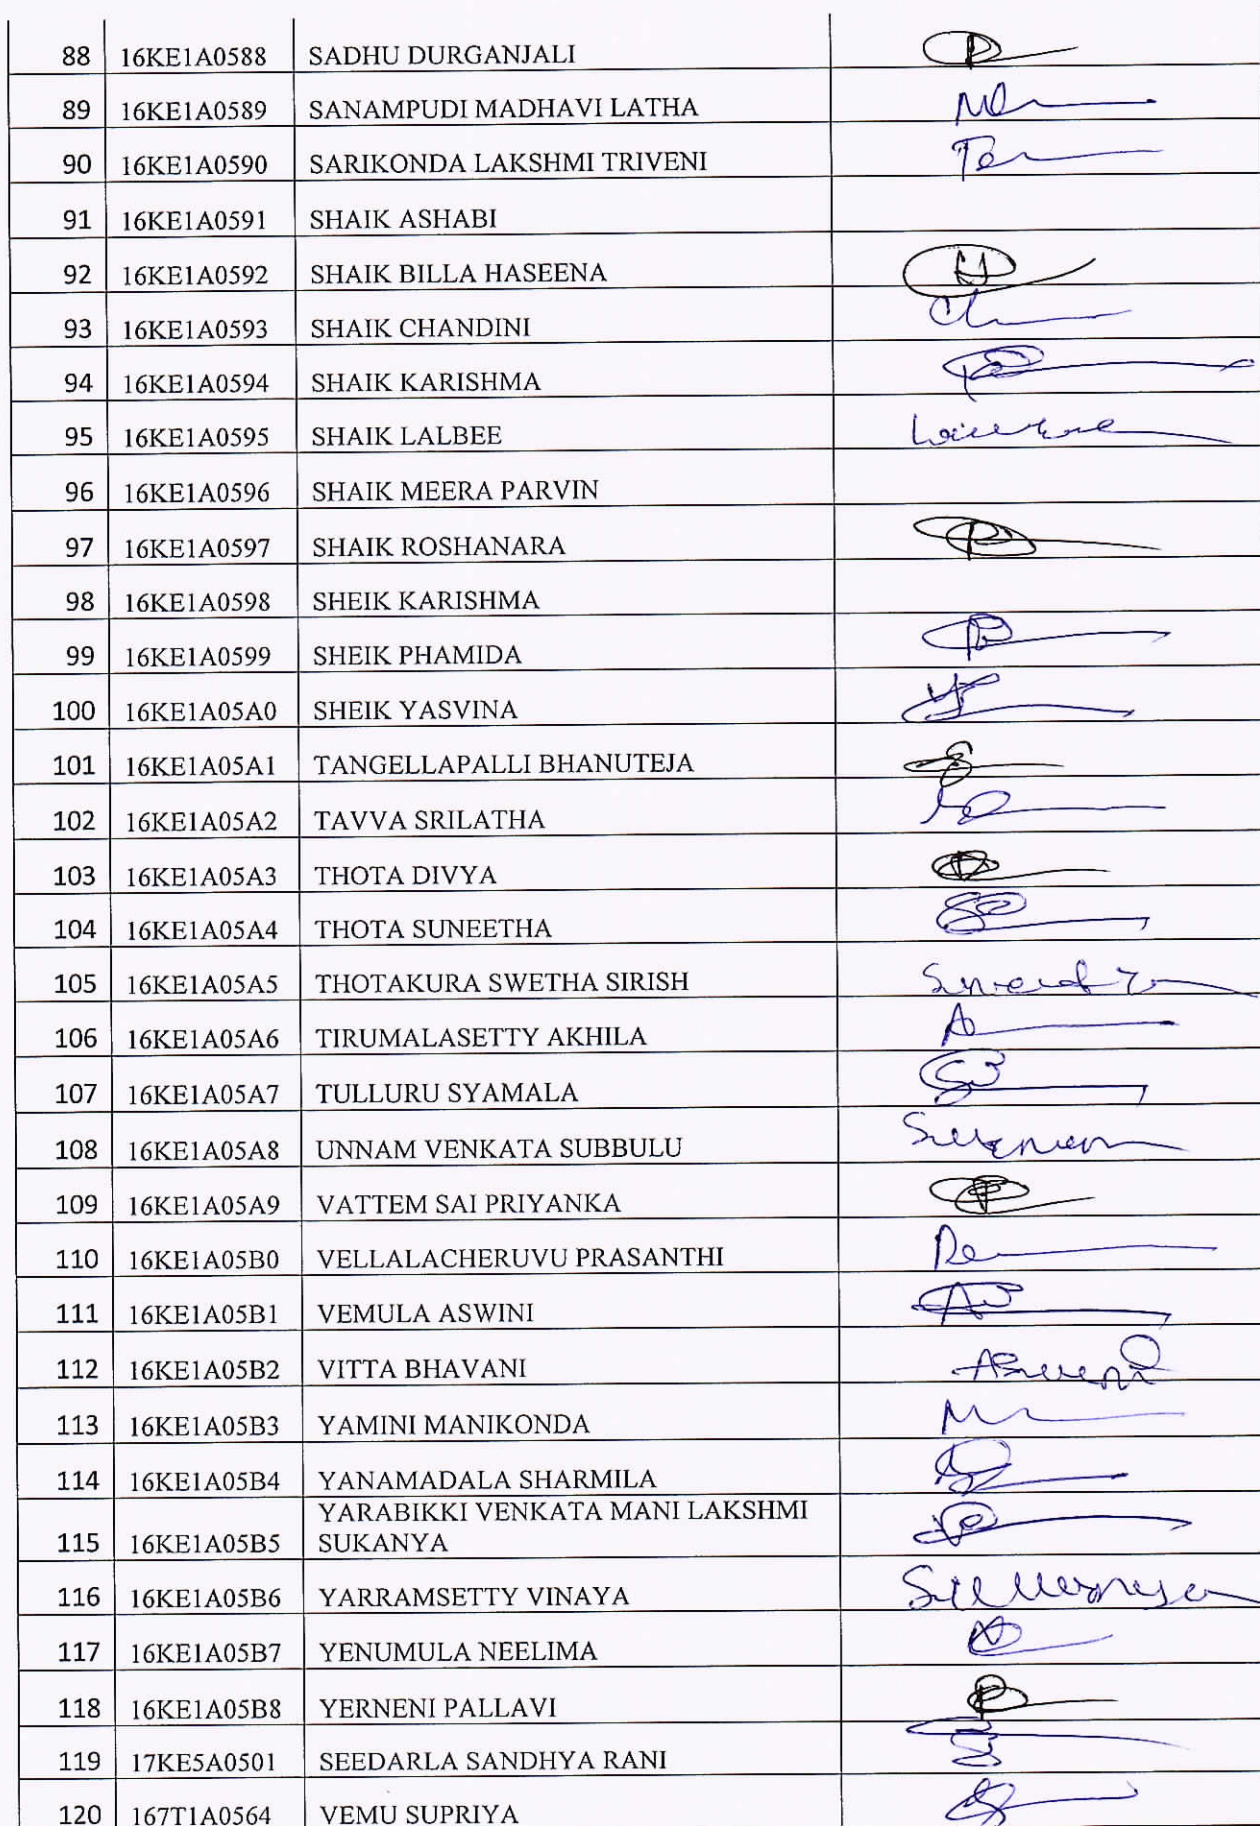 88 16KE1A0588 SADHU DURGANJALI
89 16KE1A0589 SANAMPUDI MADHAVI LATHA
90 16KE1A0590 SARIKONDA LAKSHMI TRIVENI
91 16KE1A0591 SHAIK ASHABI
92 16KE1A0592 SHAIK BILLA HASEENA
93 16KE1A0593 SHAIK CHANDINI
94 16KE1A0594 SHAIK KARISHMA
95 16KE1A0595 SHAIK LALBEE
96 16KE1A0596 SHAIK MEERA PARVIN
97 16KE1A0597 SHAIK ROSHANARA
98 16KE1A0598 SHEIK KARISHMA
99 16KE1A0599 SHEIK PHAMIDA
100 16KE1A05A0 SHEIK YASVINA
101 16KE1A05A1 TANGELLAPALLI BHANUTEJA
102 16KE1A05A2 TAVVA SRILATHA
103 16KE1A05A3 THOTA DIVYA
104 16KE1A05A4 THOTA SUNEETHA
105 16KE1A05A5 THOTAKURA SWETHA SIRISH
106 16KE1A05A6 TIRUMALASETTY AKHILA
107 16KE1A05A7 TULLURU SYAMALA
108 16KE1A05A8 UNNAM VENKATA SUBBULU
109 16KE1A05A9 VATTEM SAI PRIYANKA
110 16KE1A05B0 VELLALACHERUVU PRASANTHI
111 16KE1A05B1 VEMULA ASWINI
112 16KE1A05B2 VITTA BHAVANI
113 16KE1A05B3 YAMINI MANIKONDA
114 16KE1A05B4 YANAMADALA SHARMILA
YARABIKKI VENKATA MANI LAKSHMI
115 16KE1A05B5 SUKANYA
116 16KE1A05B6 YARRAMSETTY VINAYA
117 16KE1A05B7 YENUMULA NEELIMA
118 16KE1A05B8 YERNENI PALLAVI
119 17KE5A0501 SEEDARLA SANDHYA RANI
120 167T1A0564 VEMU SUPRIYA